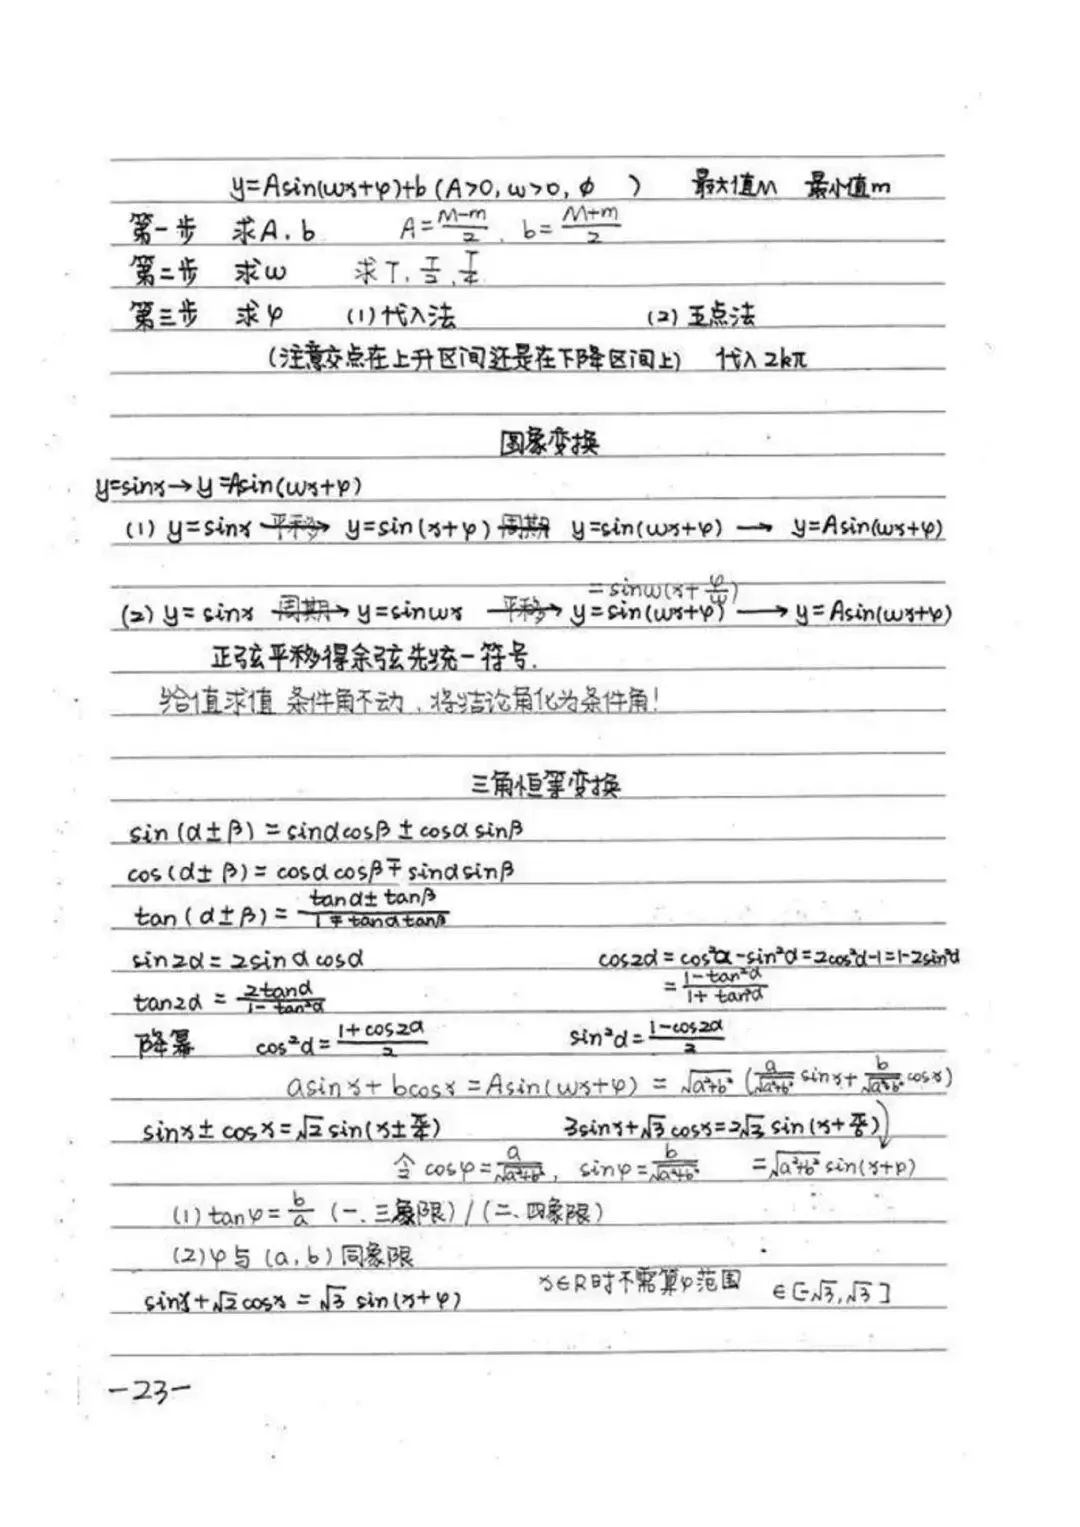 y=Asin(ωx+φ)+b (A>0, ω>0, ϕ ) 最大值M 最小值m
第一步 求A、b A=\frac{M-m}{2}、b=\frac{M+m}{2}
第二步 求ω 求T、\frac{T}{2}、\frac{T}{4}
第三步 求φ (1)代入法 (2)五点法
(注意交点在上升区间还是在下降区间上) 代入2kπ
图象变换
y=sinx→y=Asin(ωx+φ)
(1) y=sinx 平移→ y=sin(x+φ) 周期 y=sin(ωx+φ) → y=Asin(ωx+φ)
=sinω(x+\frac{φ}{ω})
(2) y=sinx 周期→ y=sinωx 平移→ y=sin(ωx+φ) → y=Asin(ωx+φ)
正弦平移得余弦先统一符号.
给值求值 条件角不动,将结论角化为条件角!
三角恒等变换
sin(α±β)=sinαcosβ±cosαsinβ
cos(α±β)=cosαcosβ∓sinαsinβ
tan(α±β)=\frac{tanα±tanβ}{1∓tanαtanβ}
sin2α=2sinαcosα cos2α=cos²α-sin²α=2cos²α-1=1-2sin²α
tan2α=\frac{2tanα}{1-tan²α} =\frac{1-tan²α}{1+tan²α}
降幂 cos²α=\frac{1+cos2α}{2} sin²α=\frac{1-cos2α}{2}
asinx+bcosx=Asin(ωx+φ)=\sqrt{a²+b²}(\frac{a}{\sqrt{a²+b²}}sinx+\frac{b}{\sqrt{a²+b²}}cosx)
sinx±cosx=√2sin(x±\frac{π}{4}) 3sinx+√3cosx=2√3sin(x+\frac{π}{6})
令cosφ=\frac{a}{\sqrt{a²+b²}}, sinφ=\frac{b}{\sqrt{a²+b²}} =\sqrt{a²+b²}sin(x+φ)
(1)tanφ=\frac{b}{a} (一、三象限)/(二、四象限)
(2)φ与(a,b)同象限
sinx+√2cosx=√3sin(x+φ) x∈R时不需算φ范围 ∈[-√3,√3]
-23-